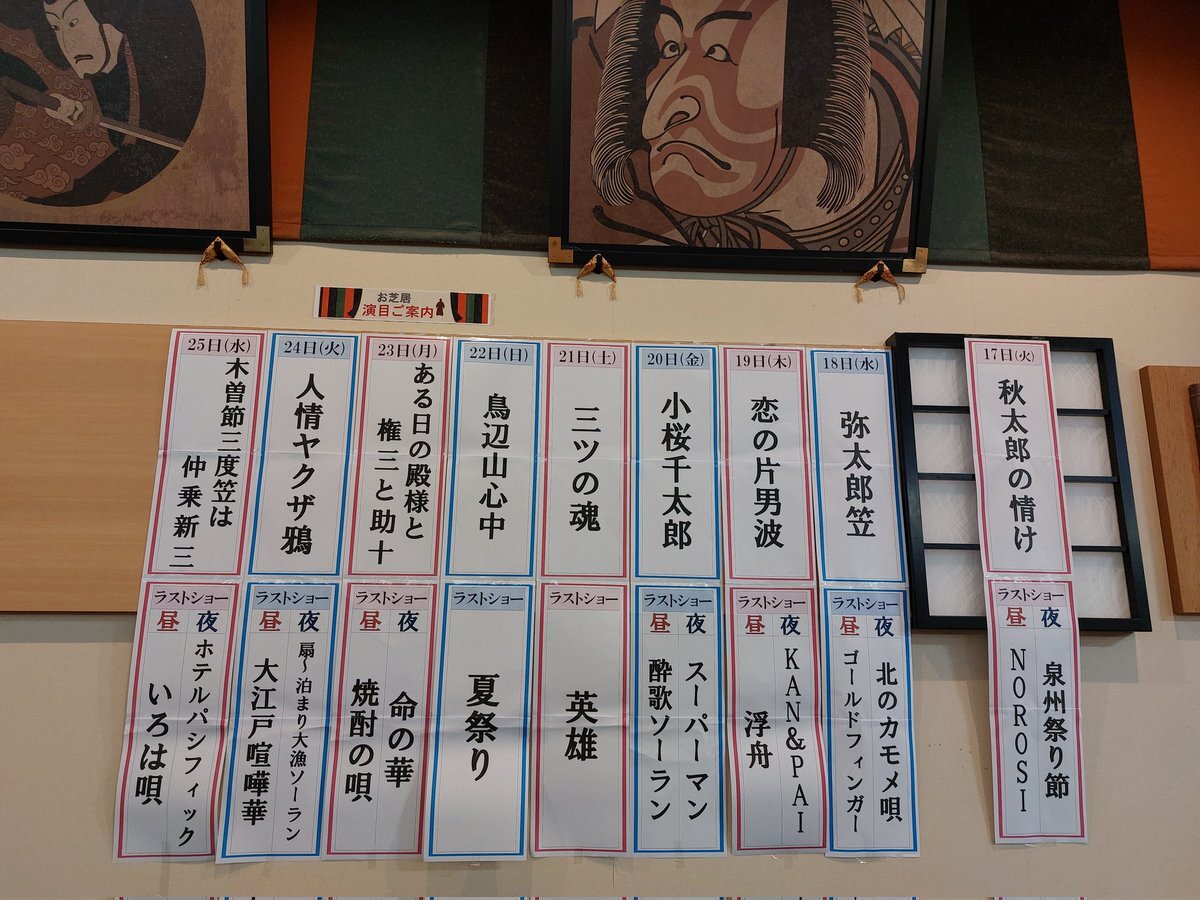 お芝居
演目ご案内
17日(火)
秋太郎の情け
ラストショー
昼 夜
泉州祭り節
NOROSI
18日(水)
弥太郎笠
ラストショー
昼 夜
北のカモメ唄
ゴールドフィンガー
19日(木)
恋の片男波
ラストショー
昼 夜
KAN&PAI
浮舟
20日(金)
小桜千太郎
ラストショー
昼 夜
スーパーマン
酔歌ソーラン
21日(土)
三ツの魂
ラストショー
英雄
22日(日)
鳥辺山心中
ラストショー
夏祭り
23日(月)
ある日の殿様と
権三と助十
ラストショー
昼 夜
命の華
焼酎の唄
24日(火)
人情ヤクザ鴉
ラストショー
昼 夜
扇〜泊まり大漁ソーラン
大江戸喧嘩華
25日(水)
木曽節三度笠は
仲乗新三
ラストショー
昼 夜
ホテルパシフィック
いろは唄